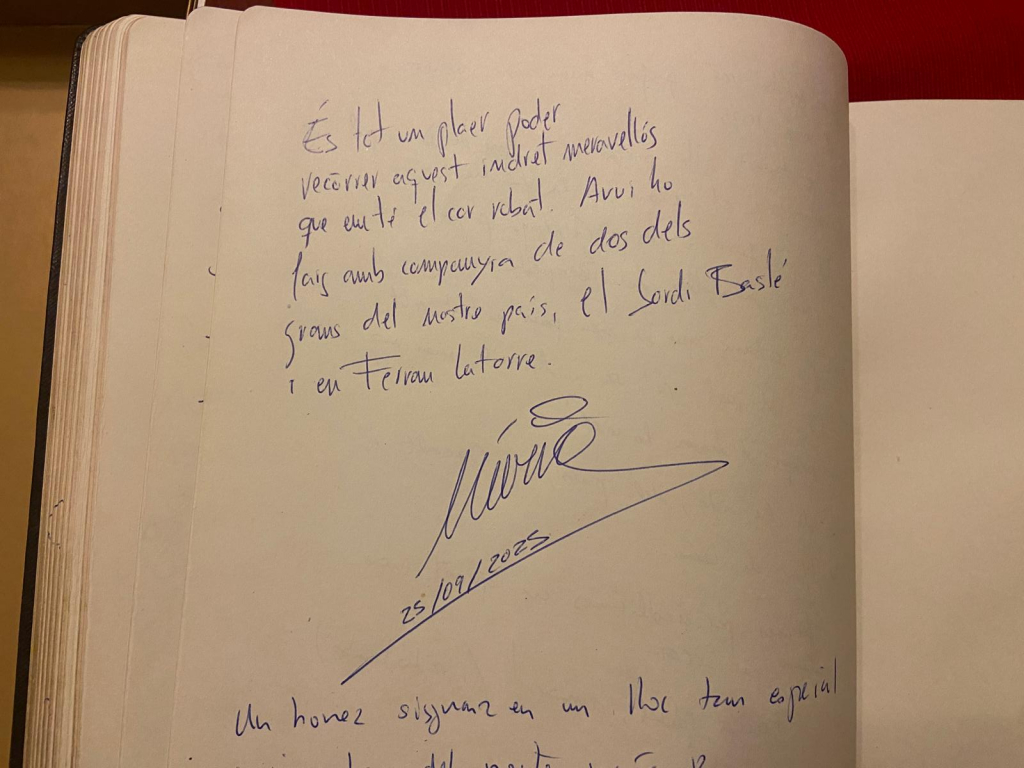 És tot un plaer poder
recórrer aquest indret meravellós
que em té el cor robat. Avui ho
faig amb companyia de dos dels
grans del nostre país, el Jordi Basté
i en Ferran Latorre.
25/09/2025
Un honor signar en un lloc tan especial
del